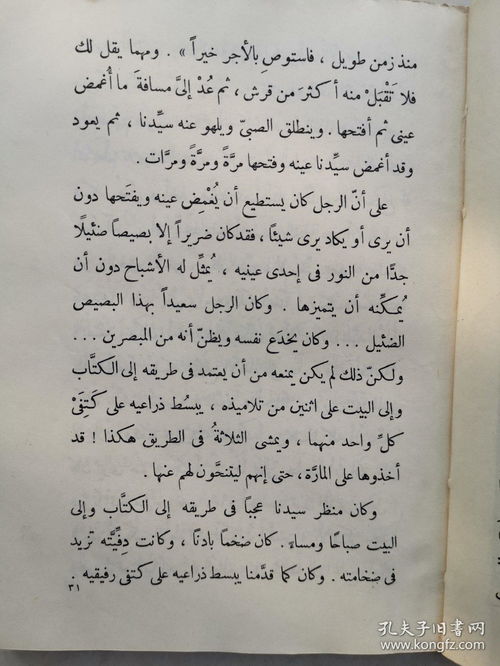 منذ زمن طويل ، فاستوصِ بالأجر خيراً » . ومهما يقل لك
فلا تَقْبَلْ منه أكثرَ من قرش ، ثم عُدْ إلىَّ مسافةَ ما أُغمض
عينى ثم أفتحها . وينطلق الصبىّ ويلهو عنه سيِّدنا ، ثم يعود
وقد أغمض سيِّدنا عينه وفتحها مرَّةً ومرَّةً ومرَّات .
على أنّ الرجل كان يستطيع أن يُغْمِض عينه ويفتَحها دون
أن يرى أو يكاد يرى شيئًا ، فقد كان ضريراً إلا بصيصاً ضئيلًا
جدًّا من النور فى إحدى عينيه ، يُمثِّل له الأشباح دون أن
يُمكِّنه أن يتميزها . وكان الرجل سعيداً بهذا البصيص
الضئيل ... وكان يخدَع نفسه ويظنّ أنه من المبصرين ...
ولكنّ ذلك لم يكن يمنعه من أن يعتمد فى طريقه إلى الكتَّاب
وإلى البيت على اثنين من تلاميذه ، يبسُط ذراعيه على كَتِفَىْ
كلِّ واحد منهما ، ويمشى الثلاثةُ فى الطريق هكذا ! قد
أخذوها على المارَّة ، حتى إنهم ليتنحَّون لهم عنها .
وكان منظر سيدنا عجبًا فى طريقه إلى الكتَّاب وإلى
البيت صباحًا ومساءً . كان ضخمًا بادنًا ، وكانت دِفِّيَّته تزيد
فى ضخامته . وكان كما قدَّمنا يبسط ذراعيه على كتفى رفيقيه .
٣١
孔夫子旧书网
www.kongfz.com